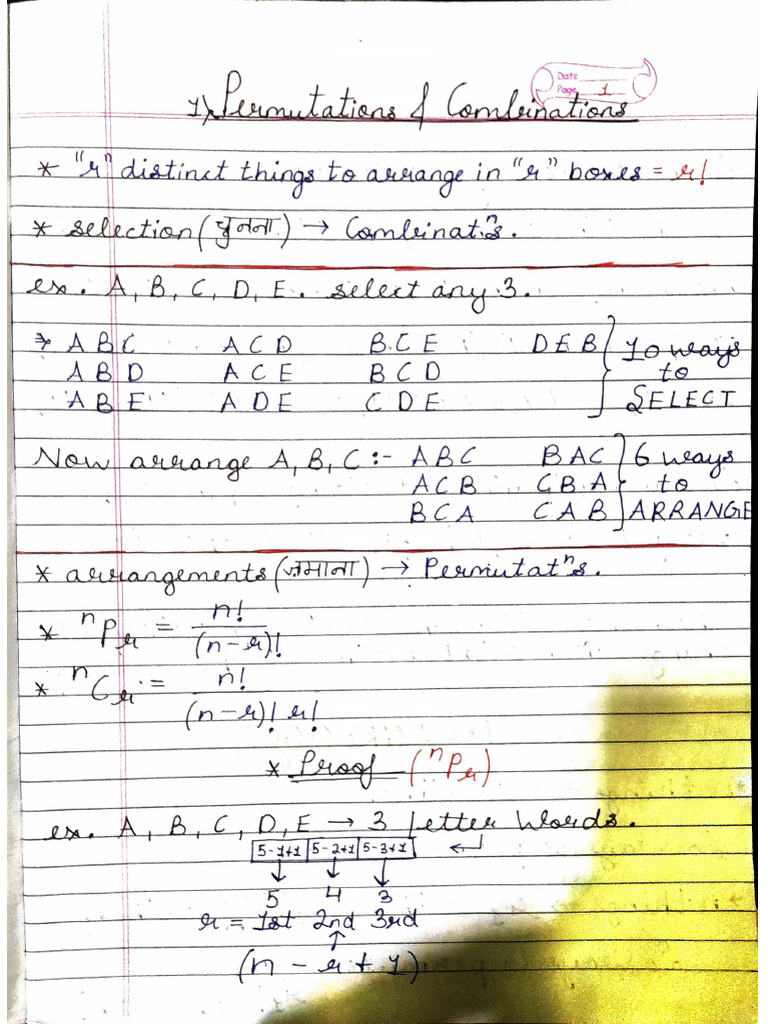 Date
Page 1
1) Permutations & Combinations
* "r" distinct things to arrange in "r" boxes = r!
* selection (चुनना) → Combinatⁿs.
ex. A, B, C, D, E. select any 3.
⇒ A B C A C D B C E D E B } 10 ways
A B D A C E B C D to
A B E A D E C D E SELECT
Now arrange A, B, C :- A B C B A C } 6 ways
A C B C B A to
B C A C A B ARRANGE
* arrangements (जमाना) → Permutatⁿs.
* ⁿPr = n! / (n-r)!
* ⁿCr = n! / (n-r)! r!
* Proof (ⁿPr)
ex. A, B, C, D, E → 3 letter words.
5-1+1 | 5-2+1 | 5-3+1 ↵
↓ ↓ ↓
5 4 3
r = 1st 2nd 3rd
↑
(n - r + 1)